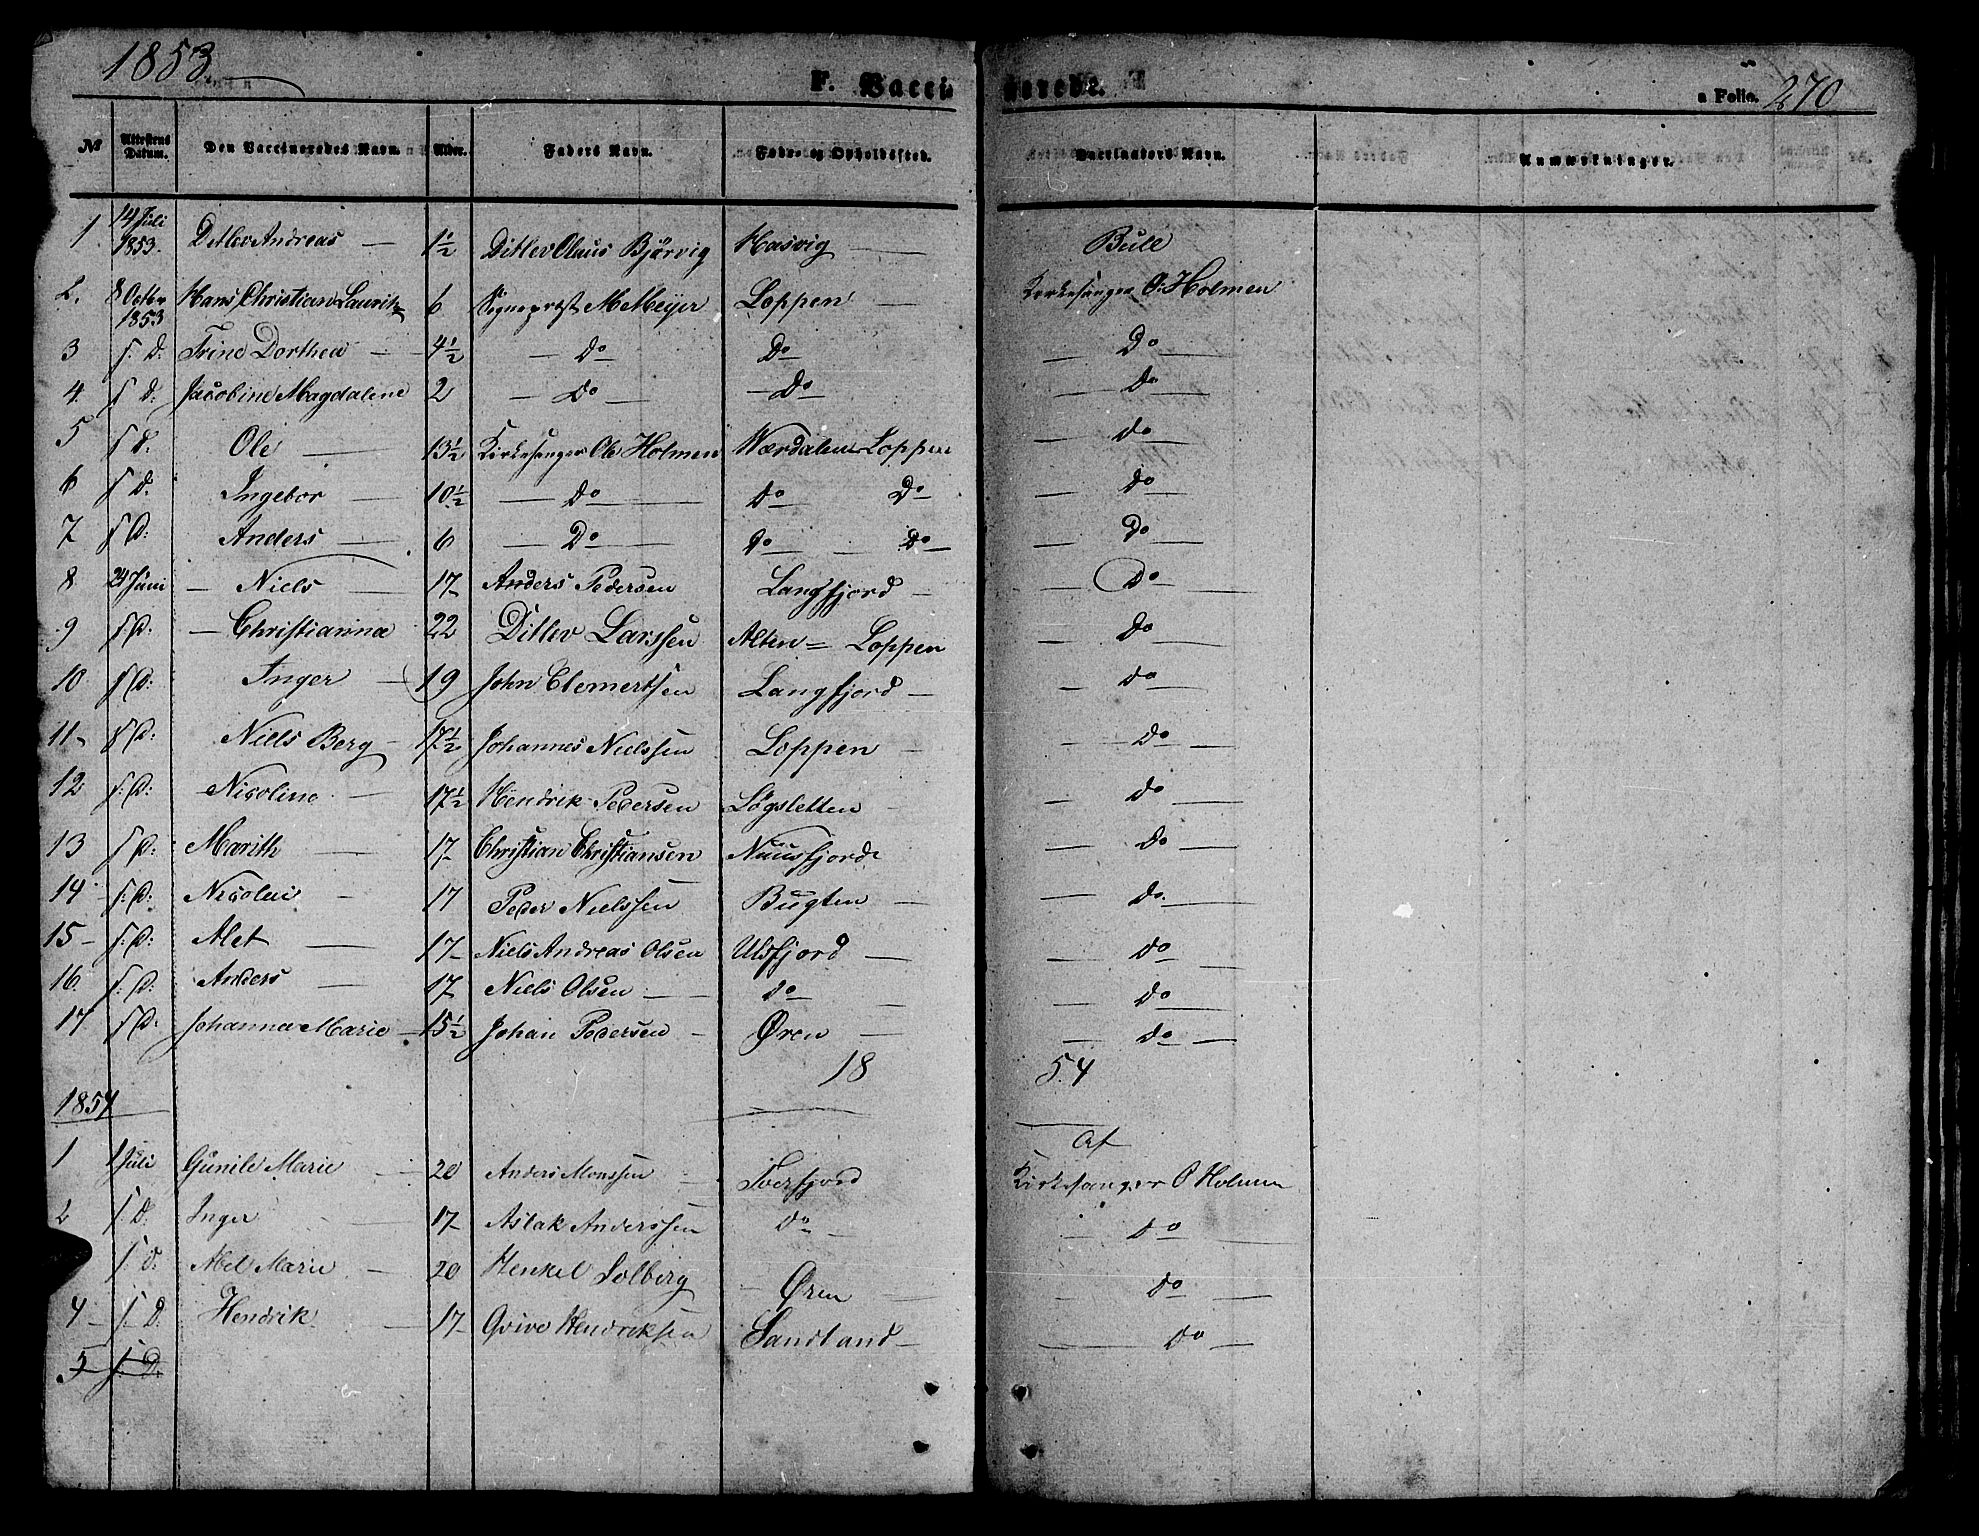 1853.
F. Vaccinerede.
a Folio. 270
No Attestens Datum. Den Vaccineredes Navn. Alder. Faders Navn. Føde- og Opholdssted. Vaccinateurs Navn. Anmærkninger.
1. 14 Juli 1853. Ditlev Andreas — 1½ Ditlev Olaus Bjørvig Hasvig — Bull
2. 8 Octbr 1853 Hans Christian Lauritz 6 Sognepræst M Meyer Loppen — Kirkesanger O. Holmen
3 s. D. Trine Dorthea — 4½ — Do — Do — — Do —
4. s D. Jacobine Magdalene 2 — Do — — Do — — Do —
5 s D. Ole — 13½ Kirkesanger Ole Holmen Værdalen Loppen — Do —
6 s D. Ingebor — 10½ — Do — Do — Do — — Do —
7 s D: Anders — 6 — Do — Do — Do — — Do —
8 24 Juni — Niels — 17 — Anders Pedersen Langfjord — — Do —
9 s D: — Christianna 22 Ditlev Larssen Alten = Loppen — Do —
10 s D: Inger — 19 John Clemertsen Langfjord — — Do —
11 — s D: Niels Berg — 17½ Johannes Nielssen Loppen — — Do —
12 s: D: Nicoline — 17½ Hendrik Pedersen Løgsletten — — Do —
13 s D: Marith — 17 — Christian Christiansen Nuusfjord — Do —
14 s: D: Nicolai — 17 Peder Nielssen Bugten — — Do. —
15 — s: D: Alet — 17 — Niels Andreas Olsen Ulsfjord — — Do —
16. s: D: Anders — 17 Niels Olsen — Do — — Do —
17 s D: Johanna Marie — 15½ Johan Pedersen — Øren — — Do —
18 54
1854
1 1 Juli Gunile Marie — 20 Anders Monssen — Tverfjord Af Kirkesanger O Holmen
2 s D. Inger — 17 — Aslak Anderssen Do — — Do —
s. D. Abel Marie — 20 Henkel Solberg — Øren — — Do —
4 — s. D. Hendrik — 17 — Qvive Hendriksen Sandland — — Do —
5 s. D.